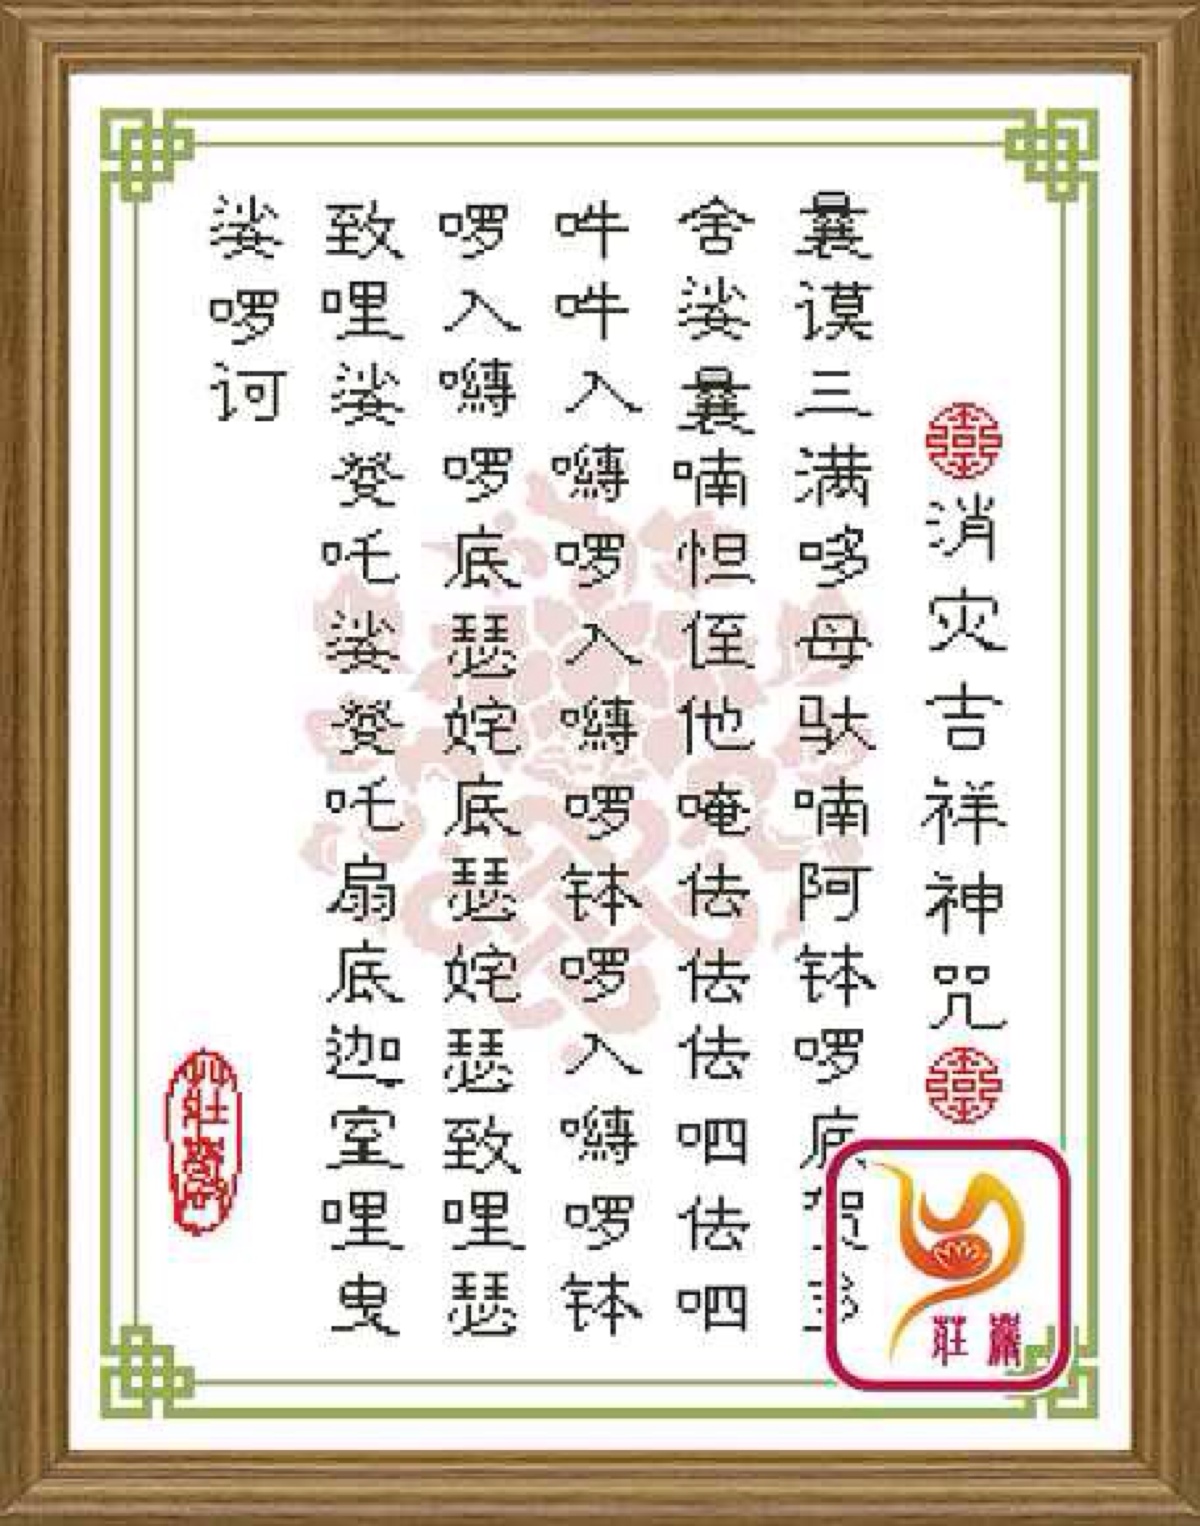 消灾吉祥神咒
曩谟三满哆母驮喃阿钵啰底
舍娑曩喃怛侄他唵佉佉佉呬佉呬
吽吽入嚩啰入嚩啰钵啰入嚩啰钵
啰入嚩啰底瑟姹底瑟姹瑟致哩瑟
致哩娑癹吒娑癹吒扇底迦室哩曳
娑啰诃
莊嚴